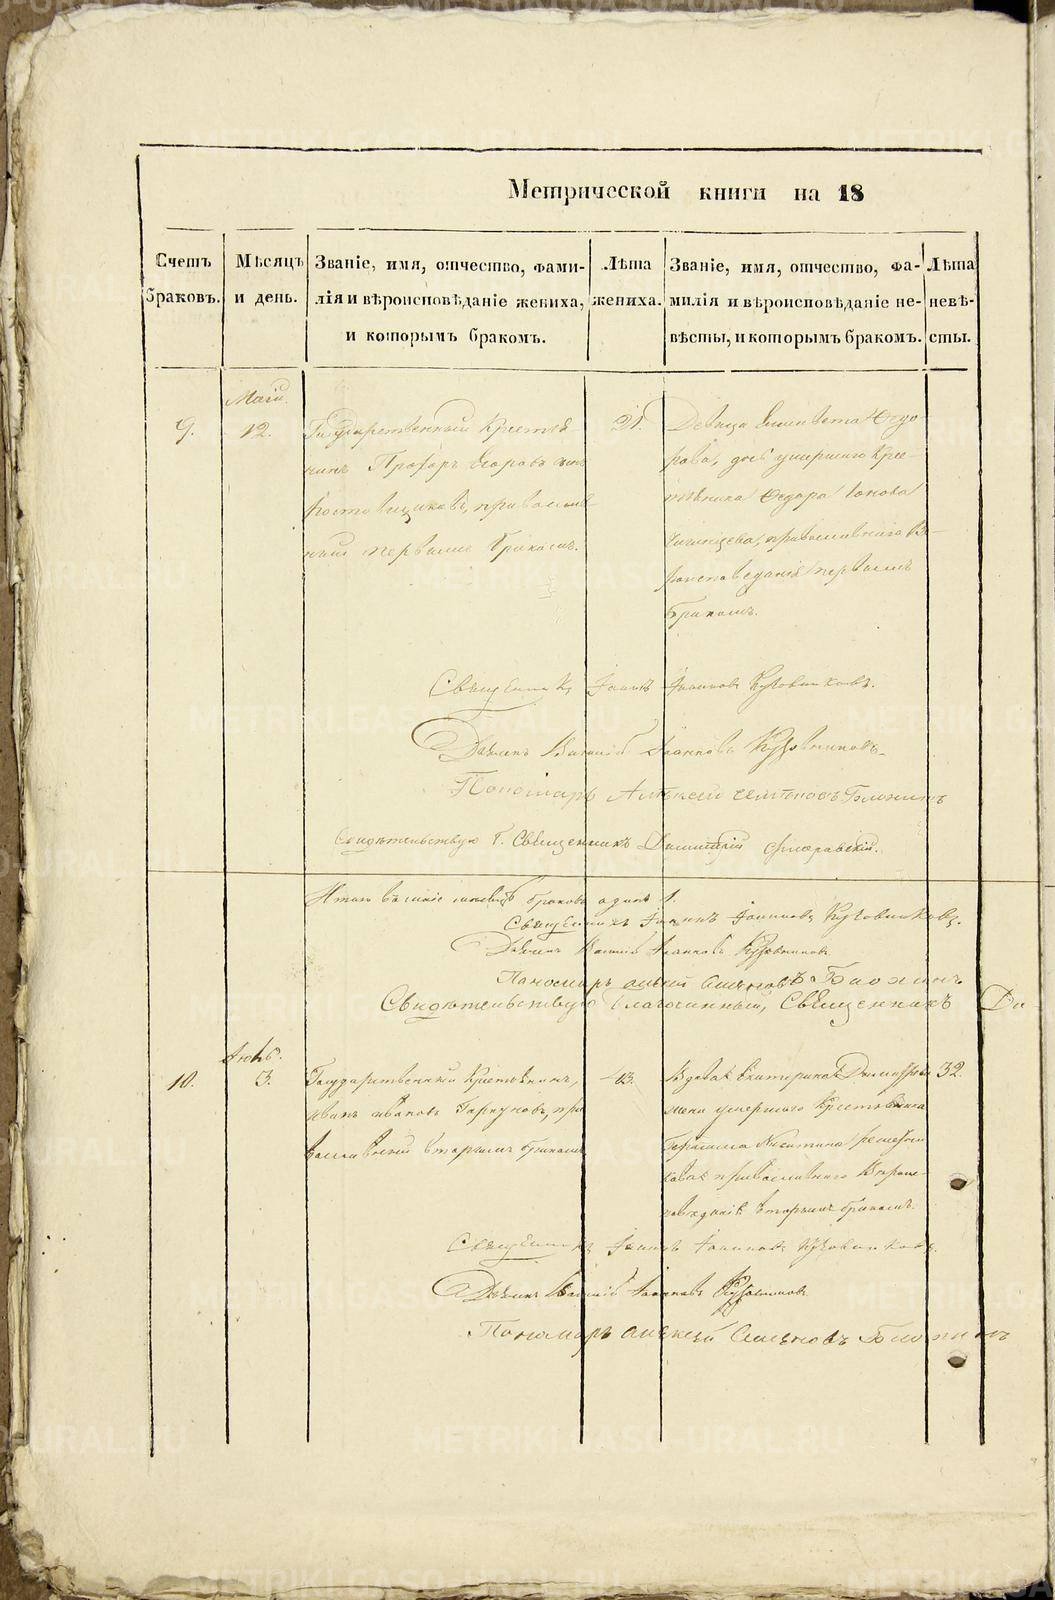 Метрической книги на 18
Счетъ браковъ.
Мѣсяцъ и день.
Званіе, имя, отчество, фами-
лія и вѣроисповѣданіе жениха,
и которымъ бракомъ.
Лѣта
жениха.
Званіе, имя, отчество, фа-
милія и вѣроисповѣданіе не-
вѣсты, и которымъ бракомъ.
Лѣта
невѣ-
сты.
9.
12.
Государственный Крестья
нинъ Прохоръ Егоровъ
православ-
ный первымъ бракомъ.
21.
Девица Елисавета Ѳедо
рова, дочь умершаго Кре
стьянина Ѳедора
православнаго Вѣ-
роисповеданія первымъ
бракомъ.
Священникъ Іоаннъ Іоанновъ Кузовниковъ.
Діаконъ Василій Іоанновъ Кузовниковъ
Пономарь Алексей Семеновъ Блохинъ
Свидѣтельствую Б. Священникъ Димитрій
Итого въ браковъ одинъ 1.
Священникъ Іоаннъ Іоанновъ Кузовниковъ.
Діаконъ Василій Іоанновъ Кузовниковъ
Пономарь Алексей Семеновъ Блохинъ
Свидѣтельствую Благочинный, Священникъ Ди-
10.
3.
Государственный Крестьянинъ,
Иванъ Ивановъ пра
вославный вторымъ бракомъ
43.
Вдова Екатерина Димитріева
жена умершаго Крестьянина
Никитина
православнаго Вѣроис-
поведанія вторымъ бракомъ.
32.
Священникъ Іоаннъ Іоанновъ Кузовниковъ.
Діаконъ Василій Іоанновъ Кузовниковъ
Пономарь Алексей Семеновъ Блохинъ
METRIKI.GASO-URAL.RU